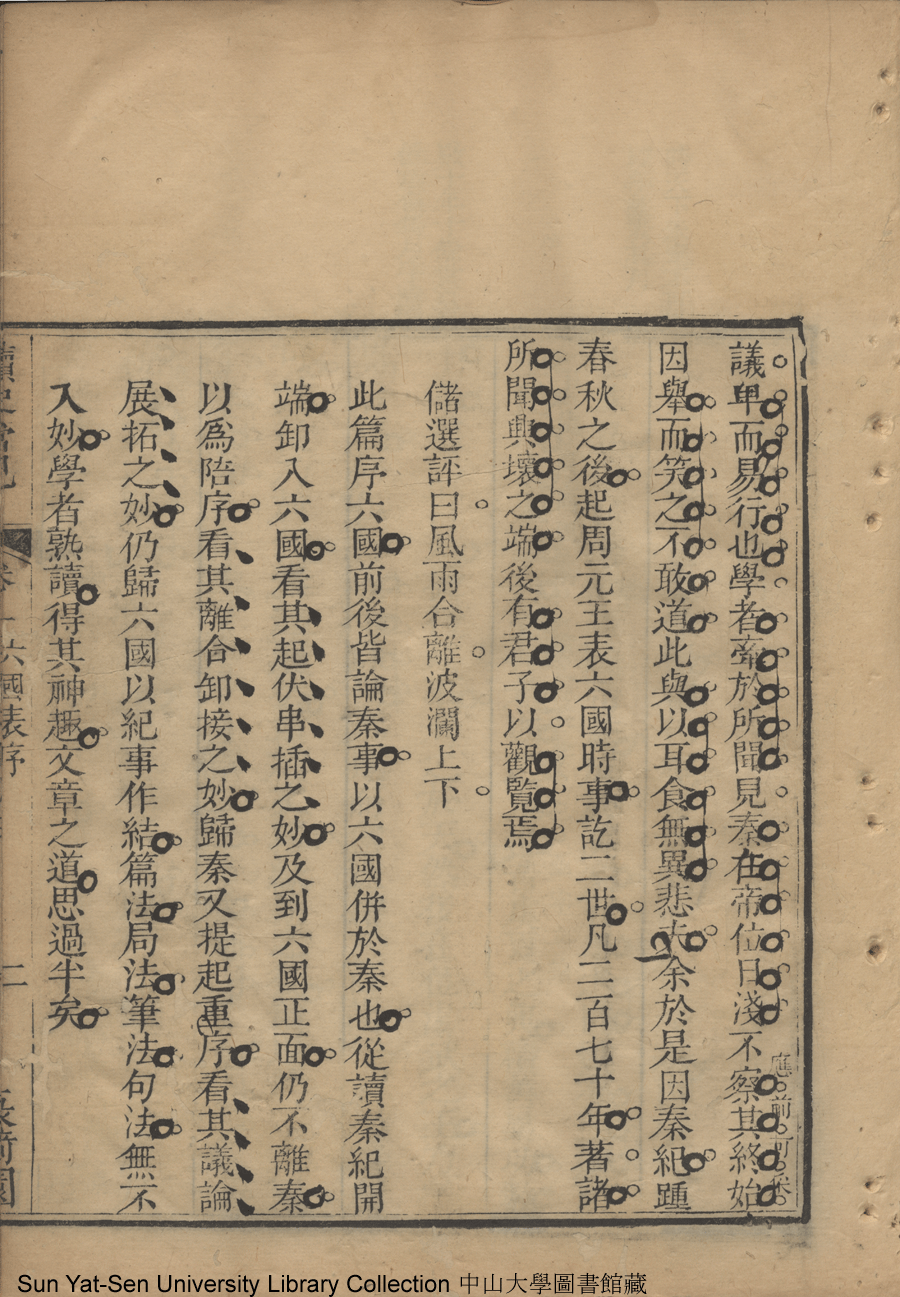 議卑而易行也學者牽於所聞見秦在帝位日淺不察其終始
因舉而笑之不敢道此與以耳食無異悲夫余於是因秦紀踵
春秋之後起周元王表六國時事訖二世凡二百七十年著諸
所聞興壞之端後有君子以觀覽焉
儲選評曰風雨合離波瀾上下
此篇序六國前後皆論秦事以六國併於秦也從讀秦紀開
端卸入六國看其起伏串插之妙及到六國正面仍不離秦
以爲陪序看其離合卸接之妙歸秦又提起重序看其議論
展拓之妙仍歸六國以紀事作結篇法局法筆法句法無不
入妙學者熟讀得其神趣文章之道思過半矣
六國表序
二
Sun Yat-Sen University Library Collection 中山大學圖書館藏